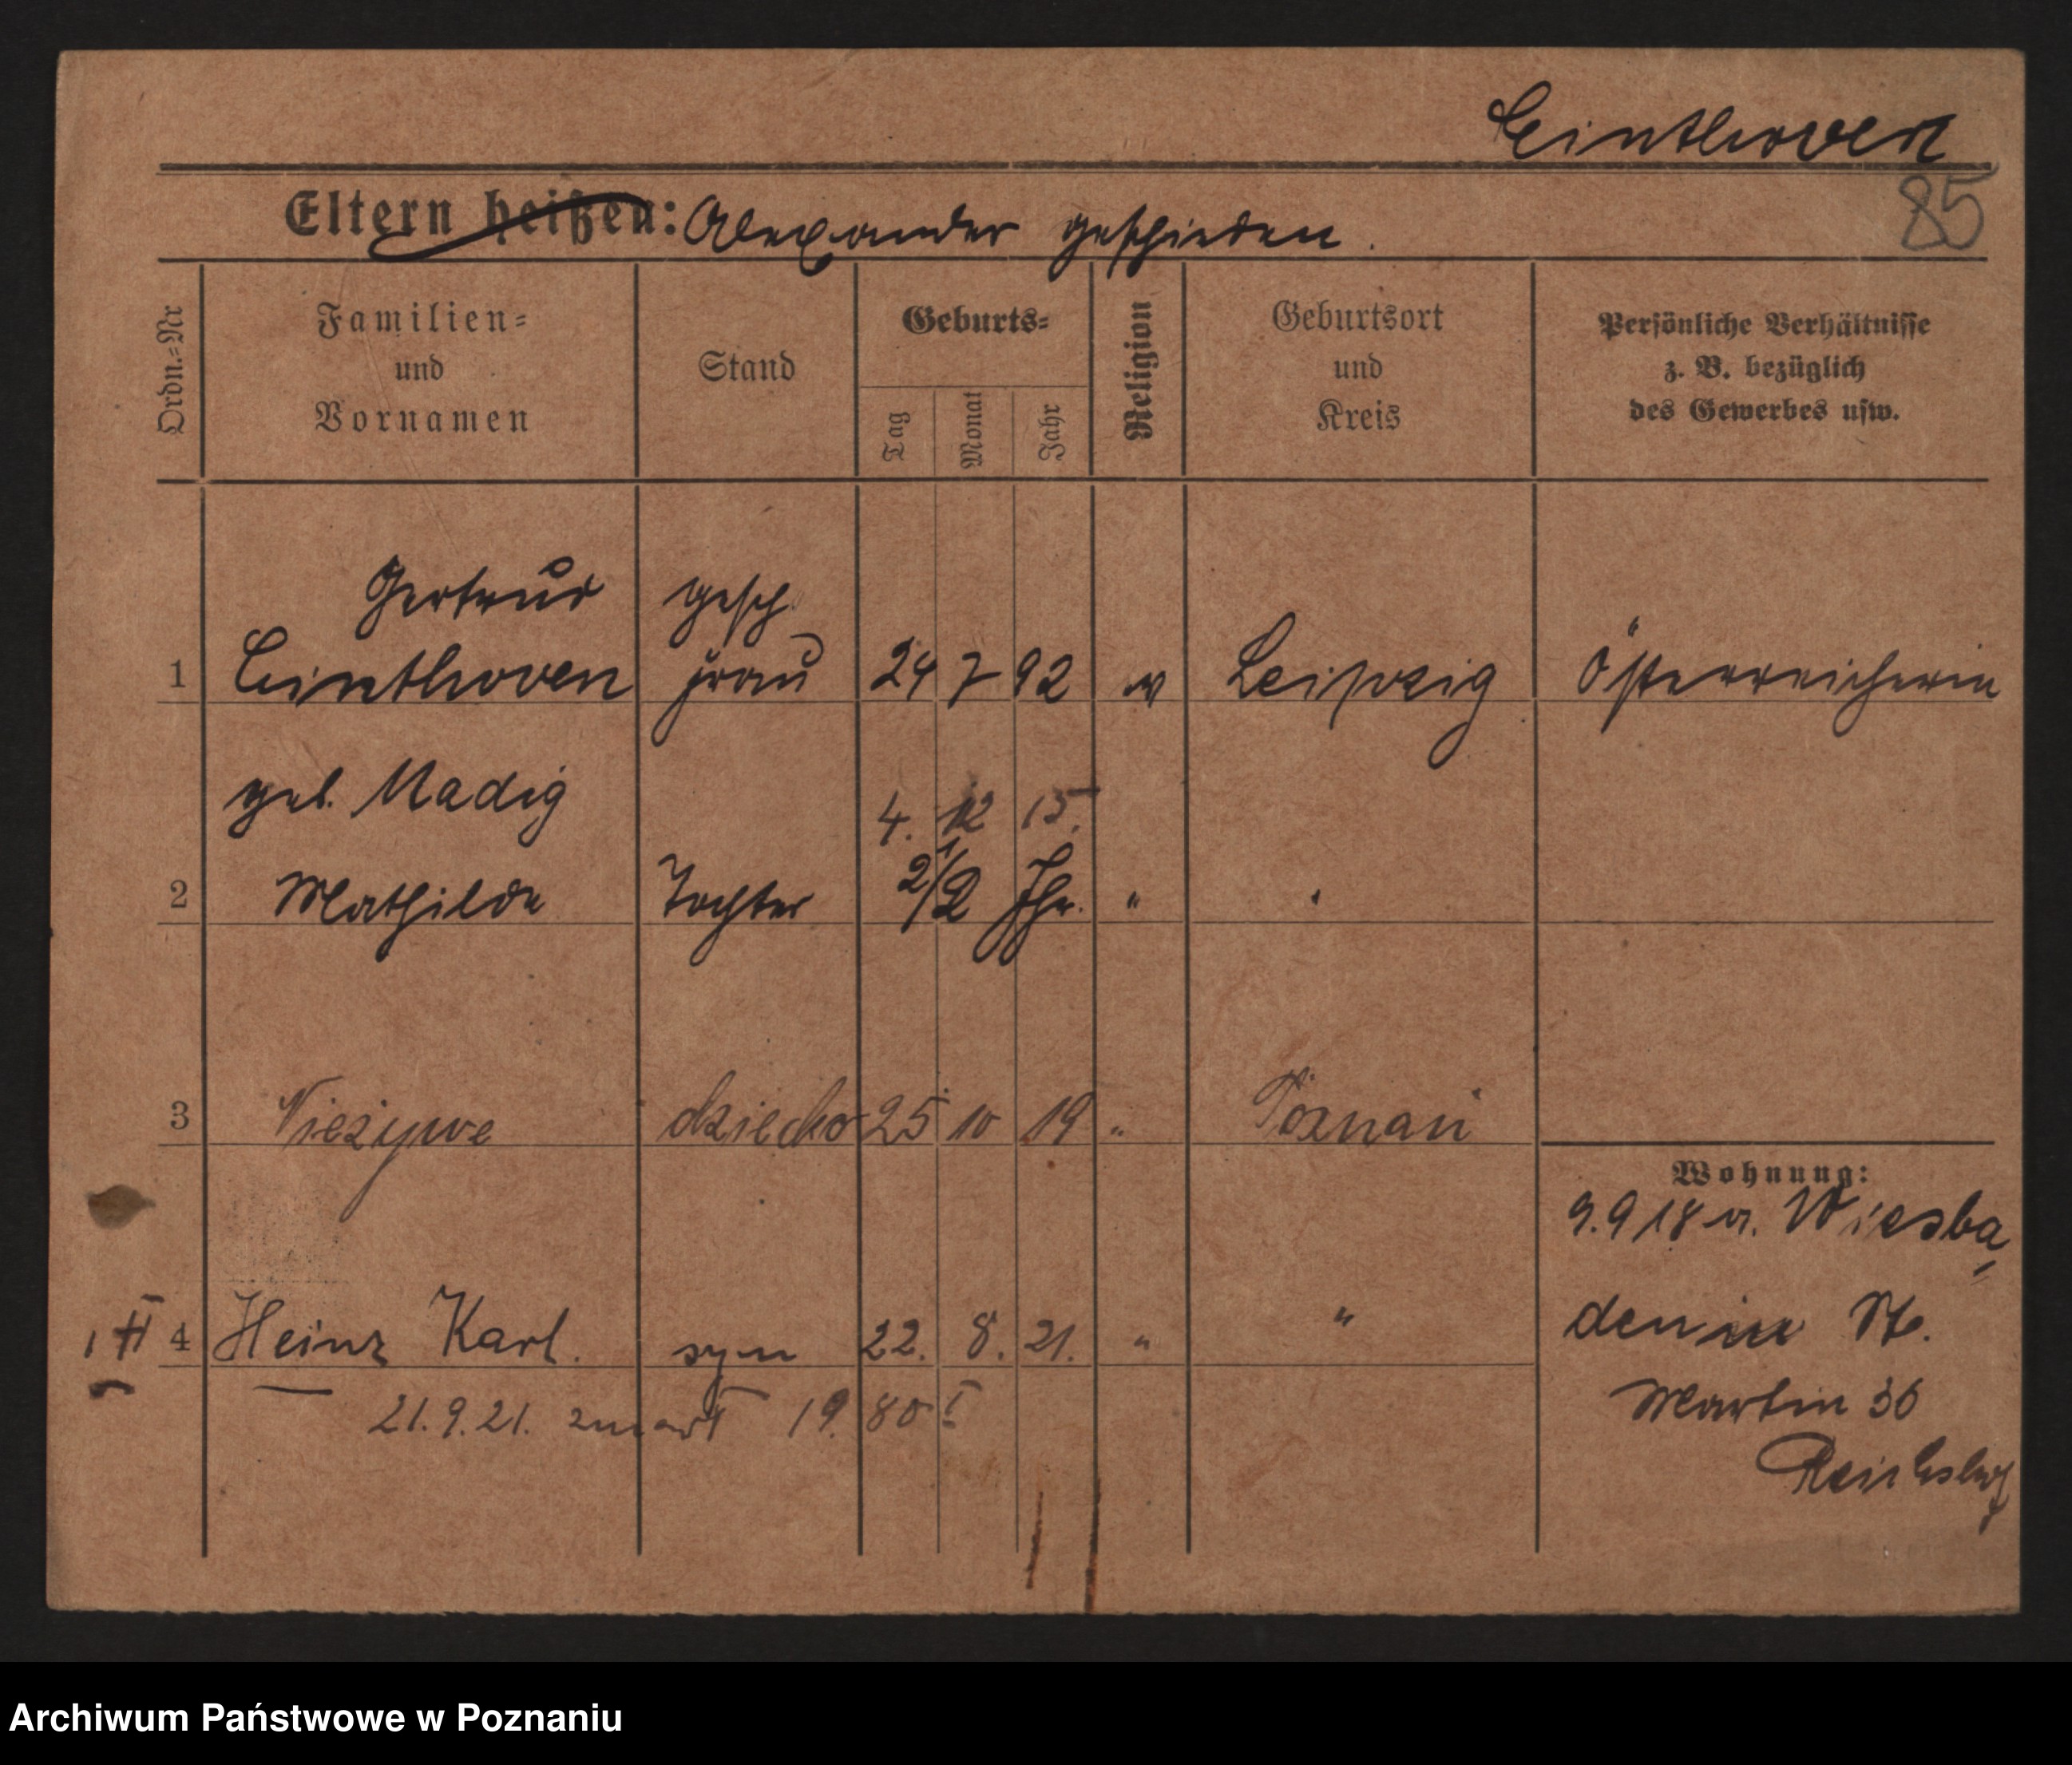 Einthoven
85
Eltern heißen: Alexander geschieden.
Ordn.=Nr
Familien=
und
Vornamen
Stand
Geburts=
Tag
Monat
Jahr
Religion
Geburtsort
und
Kreis
Persönliche Verhältnisse
z. B. bezüglich
des Gewerbes usw.
Gertrud gesch
1 Einthoven frau 24 7 92 Leipzig Österreicherin
geb. Madig
4. 12 15.
2 Mathilde Tochter 2 1/2 Jhr. "
3 Nieżywe dziecko 25 10 19 " Poznań
Wohnung:
9.9 18 v. Wiesba
den St.
1 4 Heinz Karl. syn 22. 8. 21. " "
Martin 36
21.9.21. zmarł 19. 80 I